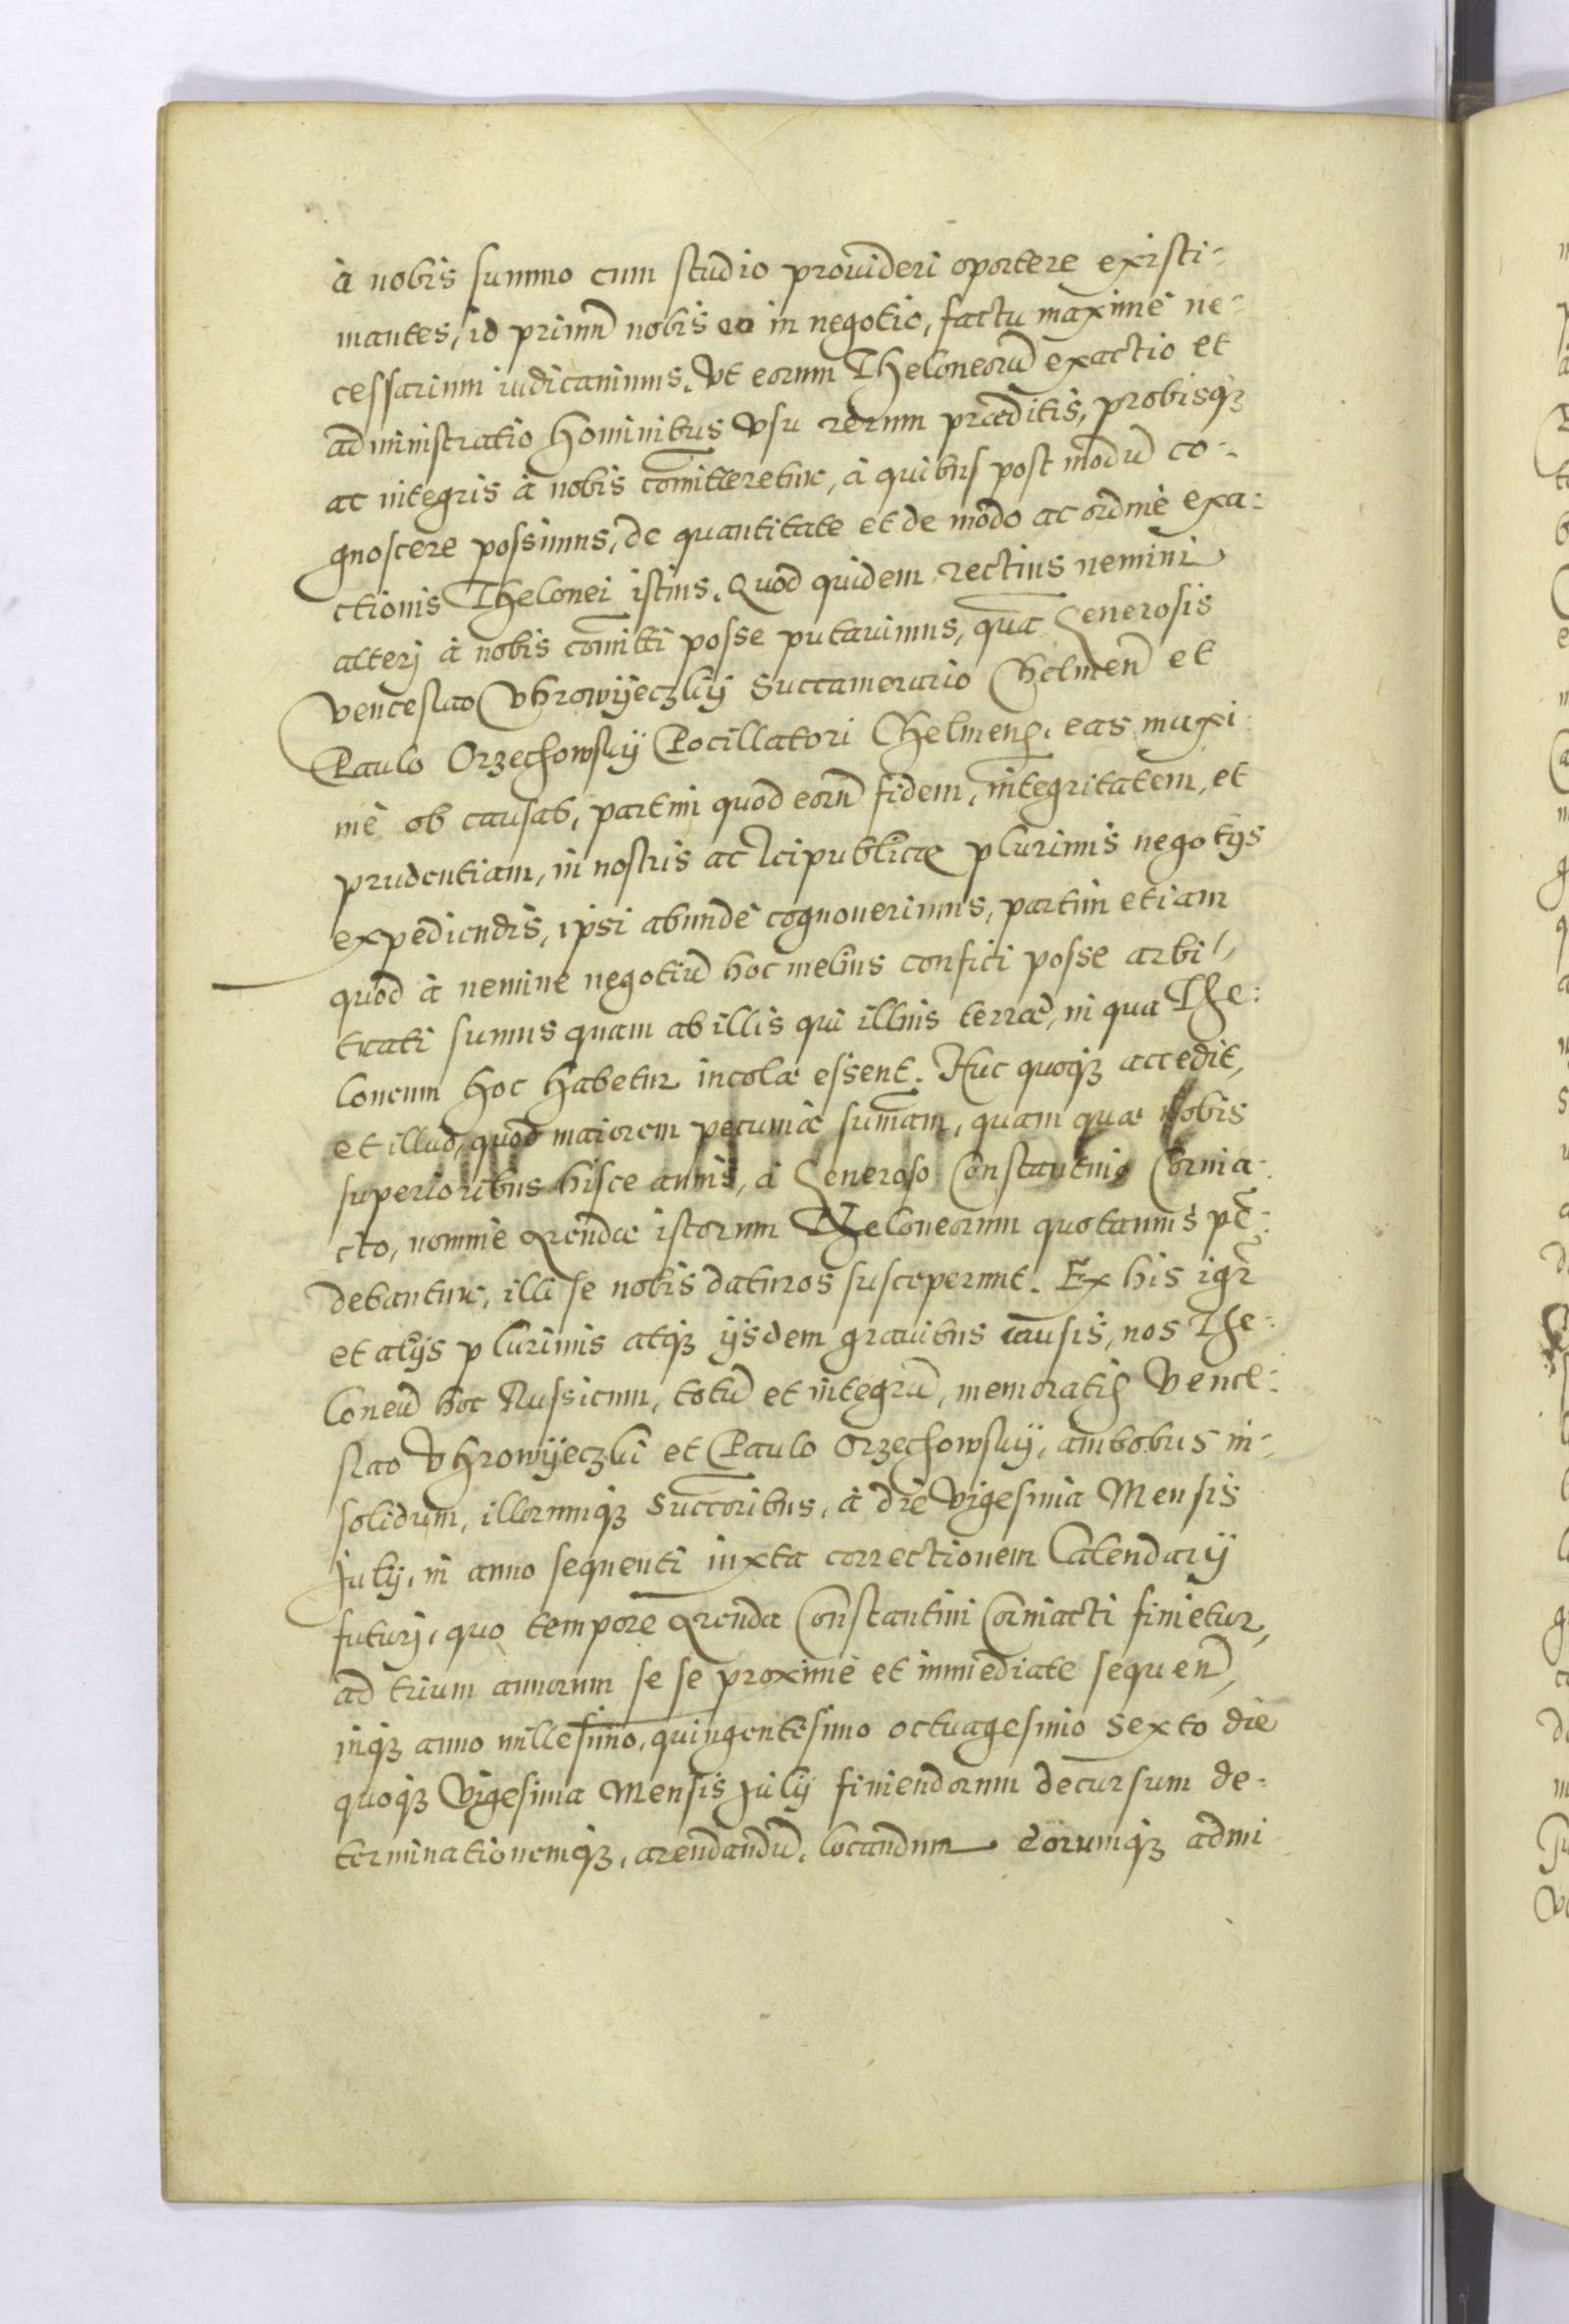 à nobis summo cum studio prouideri oportere existi-
mantes, id primũ nobis eo in negotio, factu maximè ne-
cessarium iudicauimus. Vt eorum Theloneorũ exactio et
administratio hominibus vsu rerum præditis, probisqꝫ
ac integris à nobis com̃itteretur, à quibus post modũ co-
gnoscere possimus, de quantitate et de modo ac ordine exa-
ctionis Thelonei istius. Quod quidem rectius nemini
alterj à nobis com̃itti posse putauimus, quã Generosis
Venceslao Vhrowÿeczkÿ Succamerario Chelmeñ et
Paulo Orzechowskÿ Pocillatori Chelmenß. eas maxi-
mè ob causas, partim quod eorũ fidem, integritatem, et
prudentiam, in nostris ac Reipublicæ plurimis negotÿs
expediendis, ipsi abundè cognouerimus, partim etiam
quod à nemine negotiũ hoc melius confici posse arbi-
trati sumus quam ab illis qui illius terræ, in qua The-
loneum hoc habetur incolæ essent. Huc quoqꝫ accedit,
et illud, quod maiorem pecuniæ sum̃am, quam quæ nobis
superioribus hisce annis, à Generoso Constantino Cornia-
cto, nomine Arendæ istorum Theloneorum quotannis pẽ-
debantur, illi se nobis daturos susceperunt. Ex his igr̃
et alÿs plurimis atqꝫ ÿsdem grauibus causis, nos The-
loneũ hoc Russicum, totũ et integrũ, memoratis Vence-
slao Vhrowÿeczki et Paulo Orzechowskÿ, ambobus in-
solidum, illorumqꝫ Succ̃oribus, à die Vigesima Mensis
Julÿ, in anno sequenti iuxta correctionem Calendarÿ
futurj, quo tempore Arenda Constantini Corniacti finietur,
ad trium annorum se se proximè et immediate sequeñ,
inqꝫ anno millesimo, quingentesimo octuagesimo sexto die
quoqꝫ Vigesima Mensis Julÿ finiendorum decursum de-
terminationemqꝫ, arendandũ, locandum eorumqꝫ admi